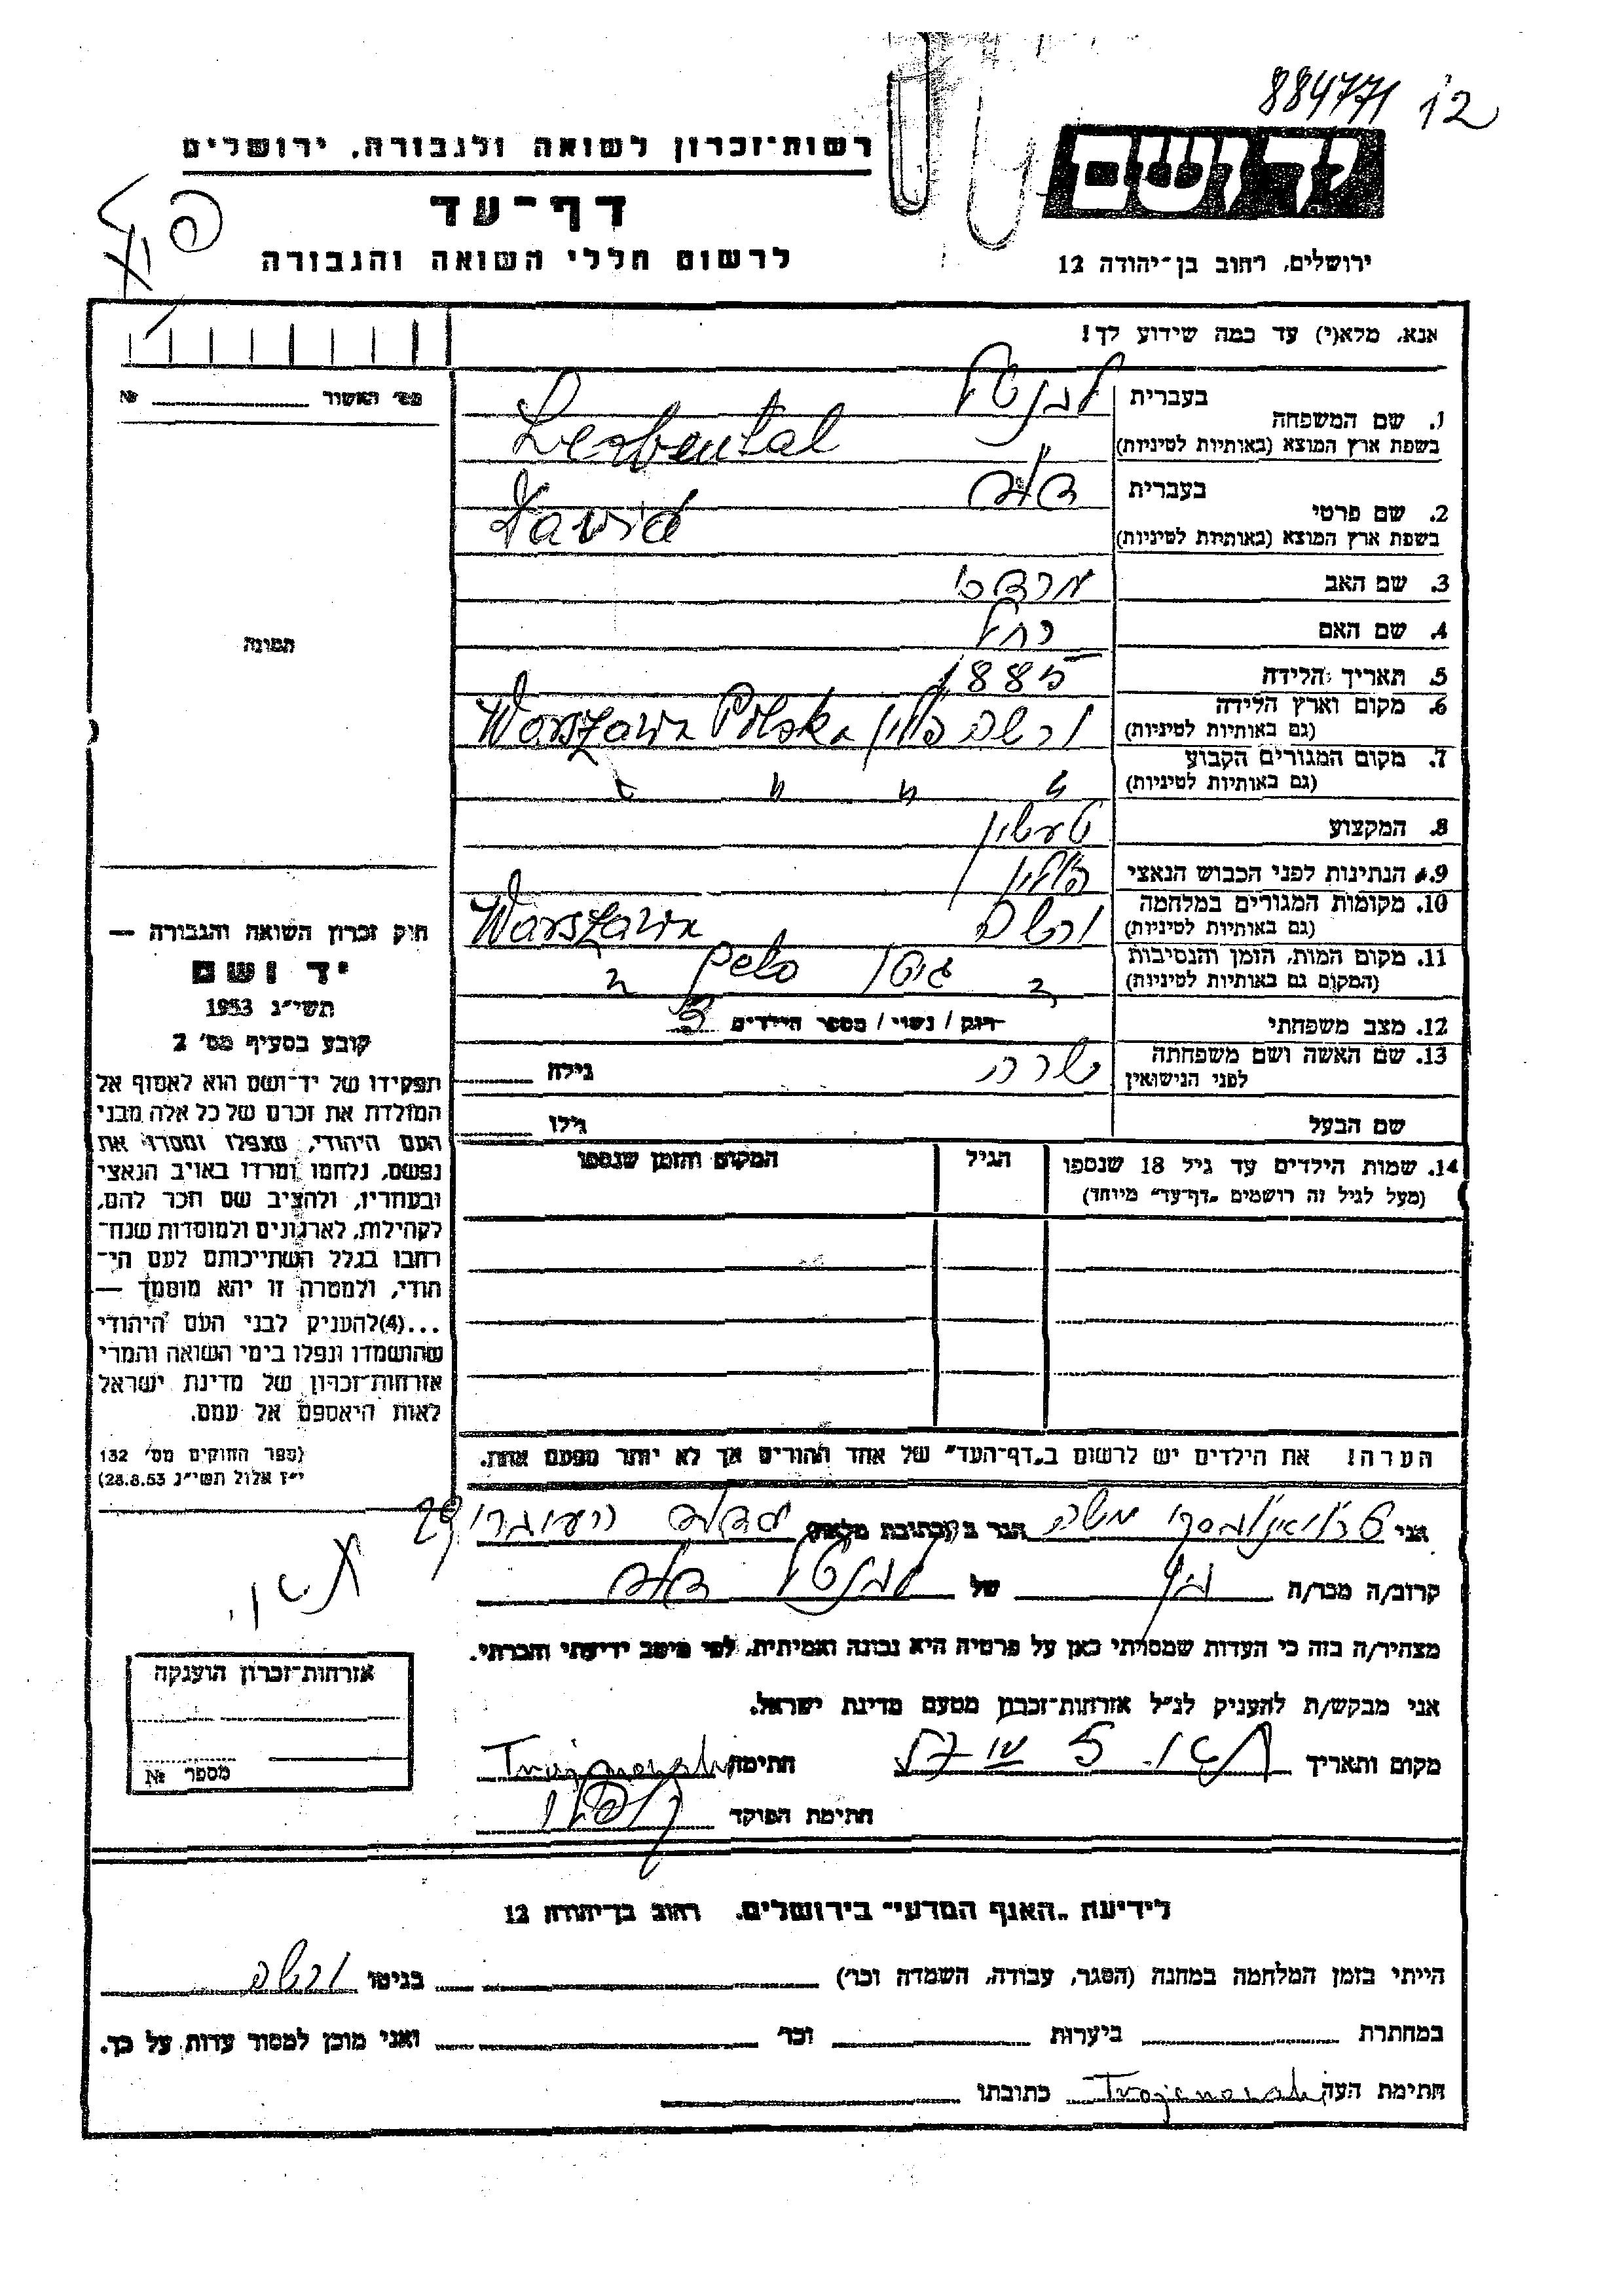 884771 12
יד ושם
רשות־זכרון לשואה ולגבורה, ירושלים
דף־עד
לרשום חללי השואה והגבורה
ירושלים, רחוב בן־יהודה 12
אנא, מלא(י) עד כמה שידוע לך!
מס׳ האשור № 
1. שם המשפחה
בעברית לבנטל
בשפת ארץ המוצא (באותיות לטיניות)
2. שם פרטי
בעברית דוד
בשפת ארץ המוצא (באותיות לטיניות) Dawid
3. שם האב מרדכי
4. שם האם רחל
5. תאריך הלידה 1885
6. מקום וארץ הלידה ורשה פולין Warszawa Polska
(גם באותיות לטיניות)
7. מקום המגורים הקבוע " " " "
(גם באותיות לטיניות)
8. המקצוע
9. הנתינות לפני הכבוש הנאצי פולין
10. מקומות המגורים במלחמה ורשה Warszawa
(גם באותיות לטיניות)
11. מקום המות, הזמן והנסיבות גיטו Geto
(המקום גם באותיות לטיניות)
12. מצב משפחתי רוק / נשוי / מספר הילדים 3
13. שם האשה ושם משפחתה לפני הנישואין שרה גילה
שם הבעל גילו
14. שמות הילדים עד גיל 18 שנספו
(מעל לגיל זה רושמים „דף־עד״ מיוחד)
הגיל
המקום והזמן שנספו
הערה! את הילדים יש לרשום ב„דף־העד״ של אחד ההורים אך לא יותר מפעם אחת.
תמונה
חוק זכרון השואה והגבורה —
יד ושם
תשי״ג 1953
קובע בסעיף מס׳ 2
תפקידו של יד־ושם הוא לאסוף אל
המולדת את זכרם של כל אלה מבני
העם היהודי, שנפלו ומסרו את
נפשם, נלחמו ומרדו באויב הנאצי
ובעוזריו, ולהציב שם וזכר להם,
לקהילות, לארגונים ולמוסדות שנח־
רבו בגלל השתייכותם לעם הי־
הודי, ולמטרה זו יהא מוסמך —
...(4)להעניק לבני העם היהודי
שהושמדו ונפלו בימי השואה והמרי
אזרחות־זכרון של מדינת ישראל
לאות היאספם אל עמם.
(ספר החוקים מס׳ 132
י״ז אלול תשי״ג 28.8.53)
אני משה הגר ב (כתובת מלאה)
קרוב/ה מכר/ה של לבנטל דוד
מצהיר/ה בזה כי העדות שמסרתי כאן על פרטיה היא נכונה ואמיתית, לפי מיטב ידיעתי והכרתי.
אני מבקש/ת להעניק לנ״ל אזרחות־זכרון מטעם מדינת ישראל.
מקום ותאריך חתימה
חתימת הפוקד
אזרחות־זכרון הוענקה
מספר №
לידיעת „האגף המדעי״ בירושלים, רחוב בן־יהודה 12
הייתי בזמן המלחמה במחנה (הסגר, עבודה, השמדה וכו׳) בגיטו ורשה
במחתרת ביערות וכו׳ ואני מוכן למסור עדות על כך.
חתימת העד כתובתו